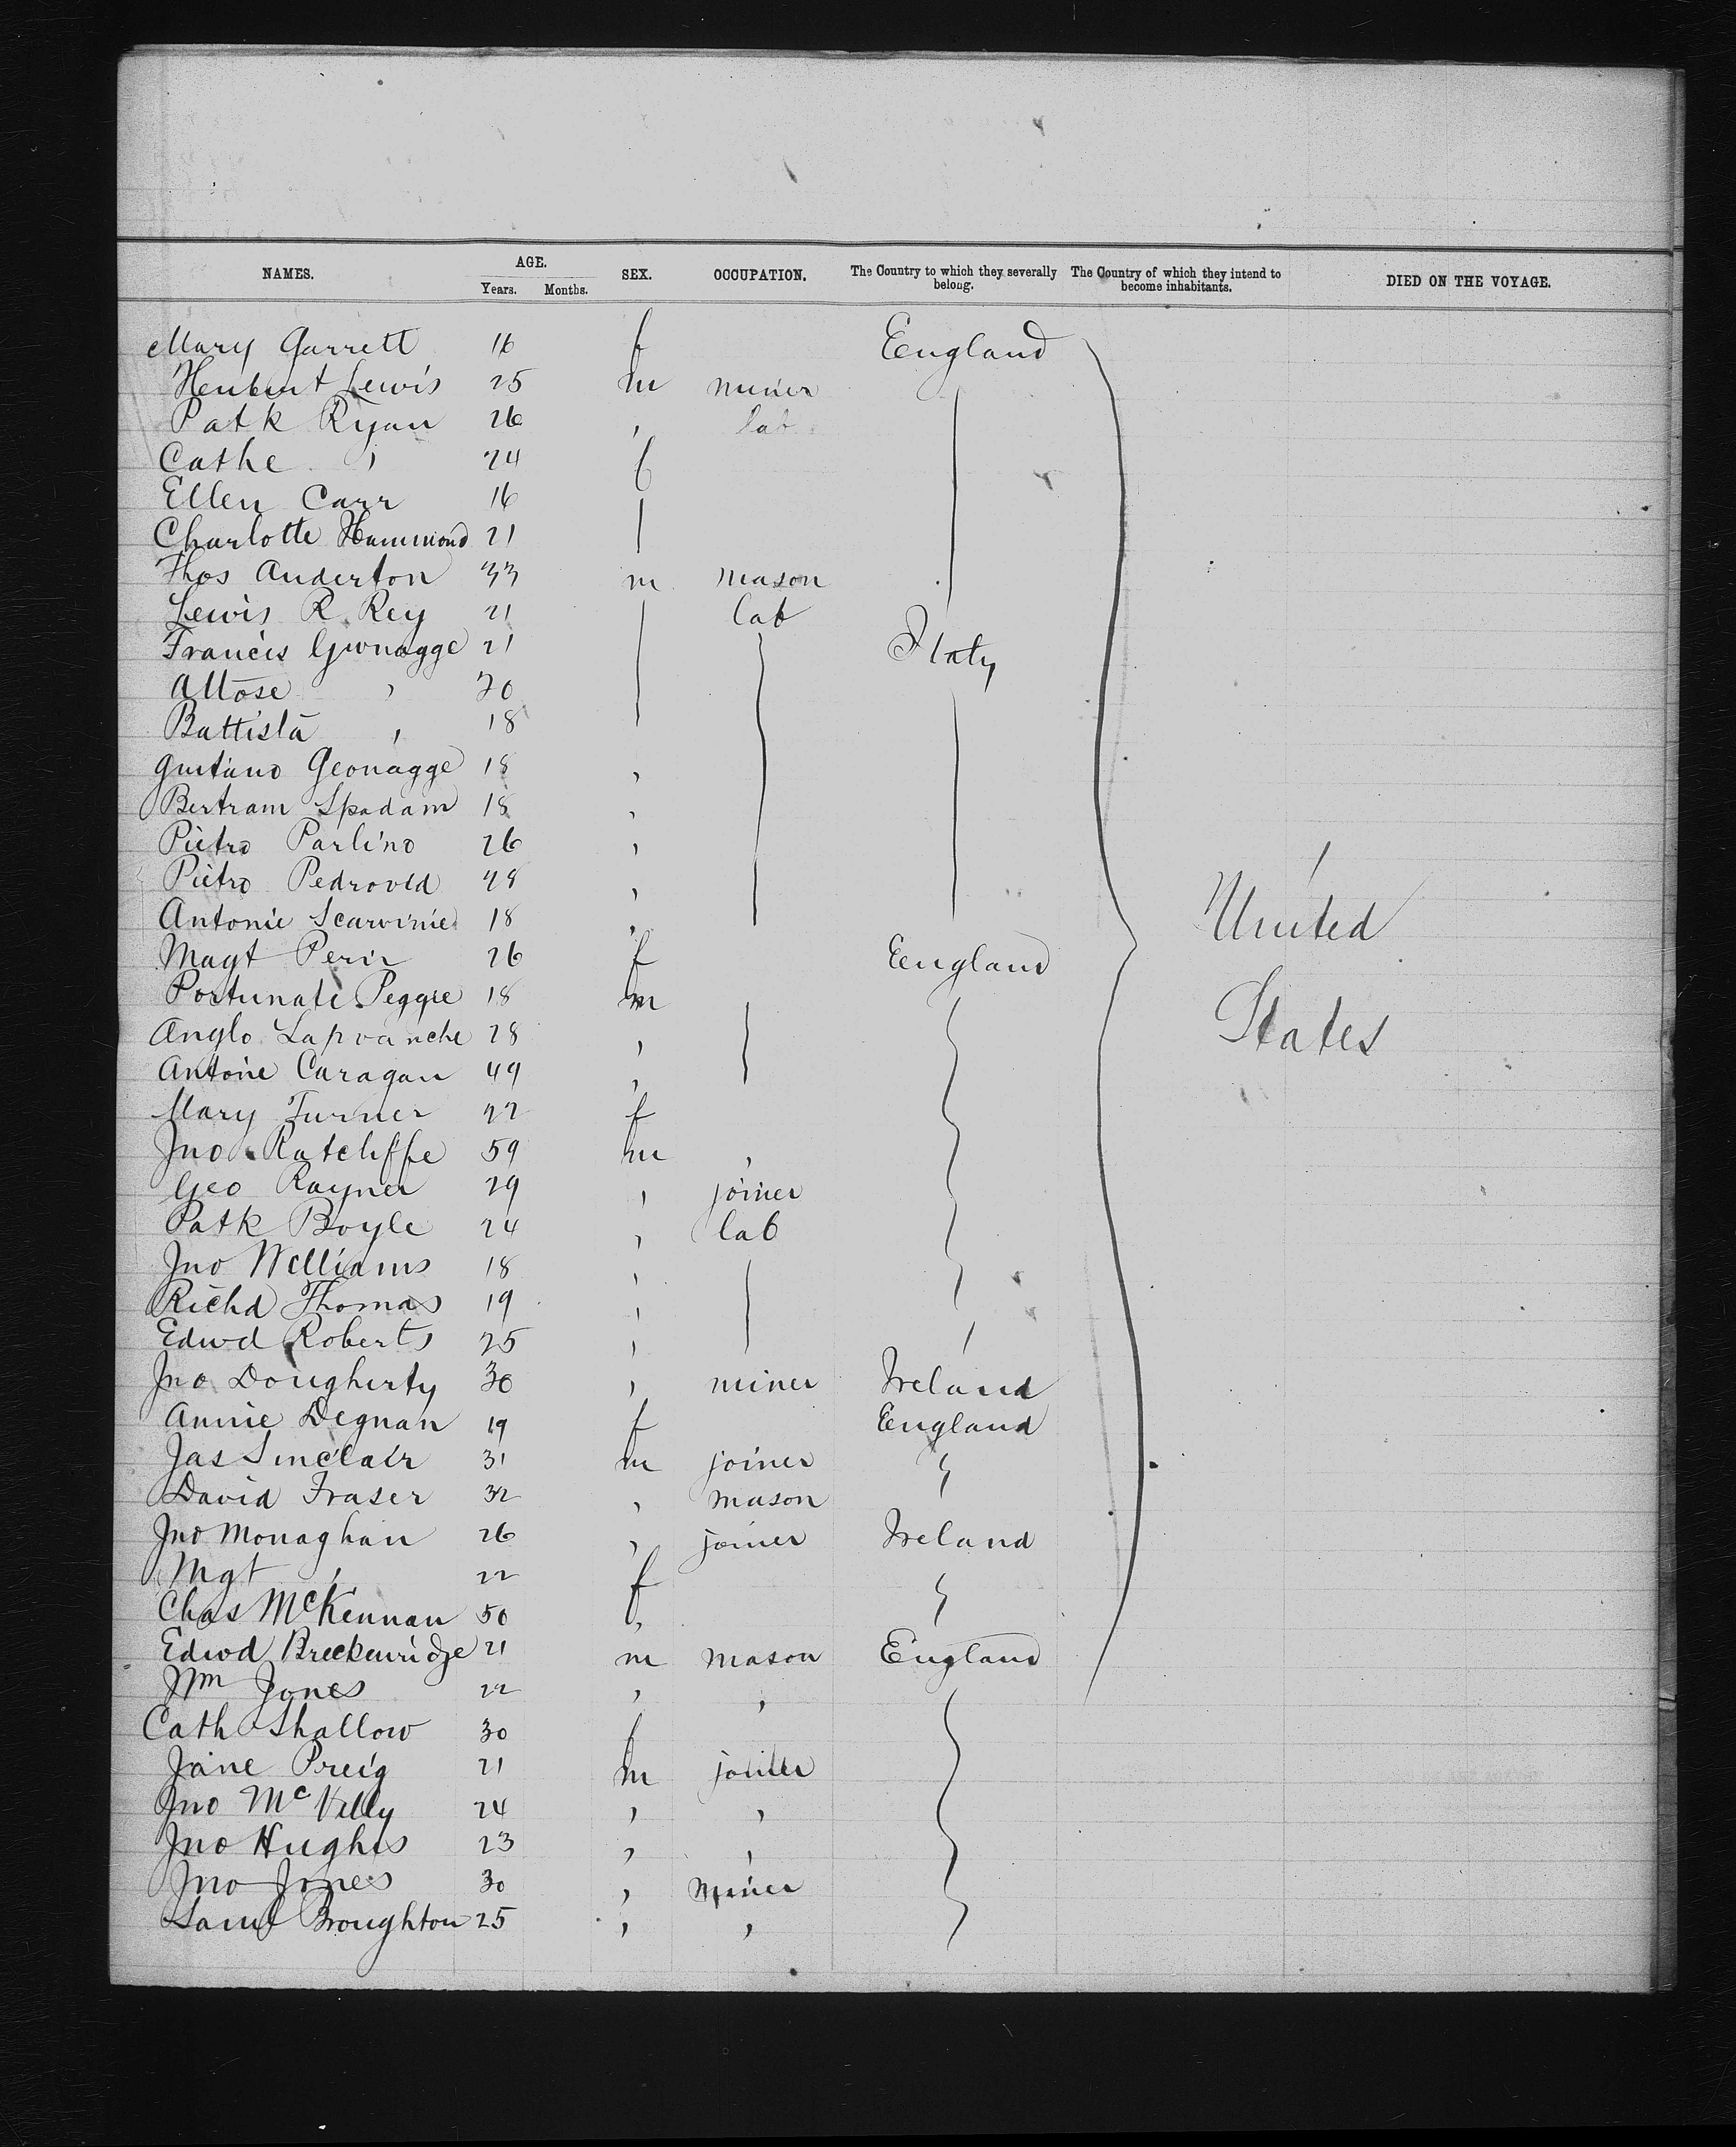 NAMES. AGE. SEX. OCCUPATION. The Country to which they severally belong. The Country of which they intend to become inhabitants. DIED ON THE VOYAGE.
Years. Months.
Mary Garrett 16 f England
Herbert Lewis 25 m miner
Patk Ryan 26 , lab
Cathe , 24 f
Ellen Carr 16
Charlotte Hammond 21
Thos Anderton 33 m mason
Lewis R Rey 21 lab
Francis 21 Italy
Attose , 20
Battista , 18
Geonagge 18 ,
Bertram Spadam 18 ,
Pietro Parlino 26 ,
Pietro Pedroved 48 ,
Antonie Scarvinie 18 ,
Magt Perir 26 f England
Portunate Peggie 18 m
Anglo Lapvanche 28 ,
Antoine Caragan 49 ,
Mary Turner 22 f
Jno Ratcliffe 59 m ,
Geo Rayner 29 , joiner
Patk Boyle 24 , lab
Jno Williams 18 ,
Richd Thomas 19 ,
Edwd Roberts 25 ,
Jno Dougherty 30 , miner Ireland
Annie Degnan 19 f England
Jas Sinclair 31 m joiner
David Fraser 32 , mason
Jno Monaghan 26 , joiner Ireland
Mgt , 22 f
Chas McKennan 50 ,
Edwd Breckenridge 21 m mason England
Wm Jones 22 , ,
Cath Shallow 30 f
Jane Preig 21 m joiner
Jno McVelly 24 , ,
Jno Hughes 23 , ,
Jno Jones 30 , miner
Saml Broughton 25 , ,
United
States